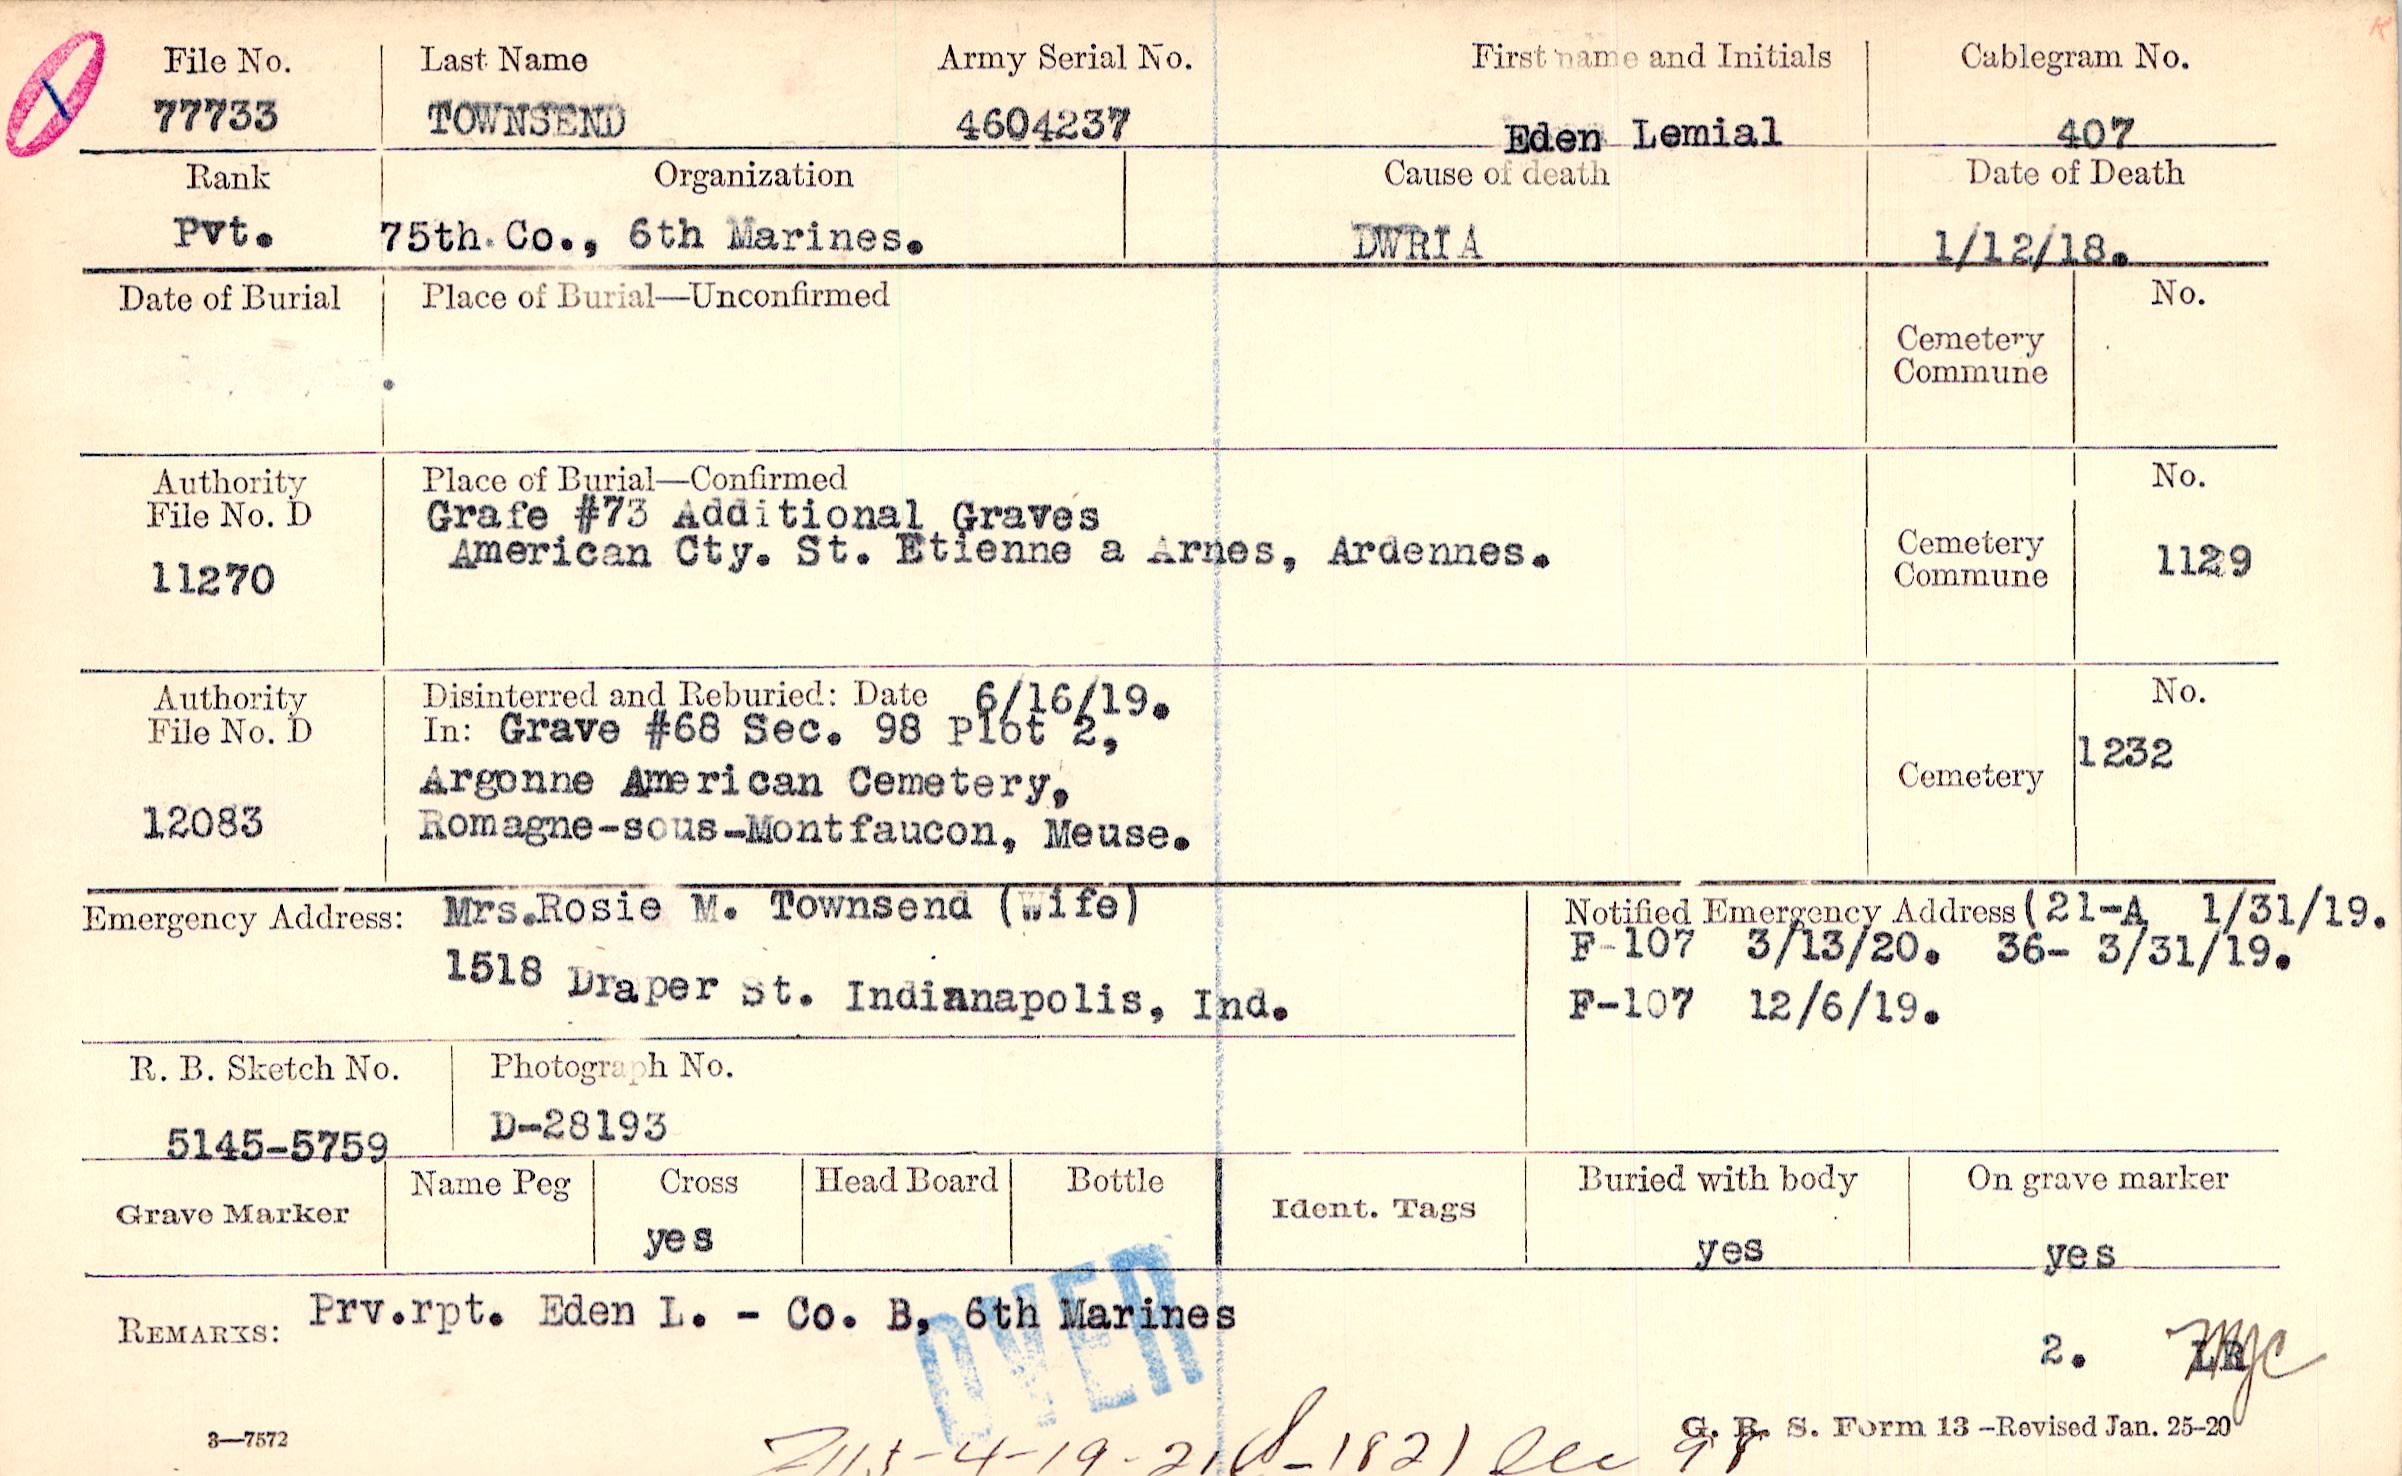 File No. Last Name Army Serial No. First name and Initials Cablegram No.
77733 TOWNSEND 4604237 Eden Lemial 407
Rank Organization Cause of death Date of Death
Pvt. 75th Co., 6th Marines. DWRIA 1/12/18.
Date of Burial Place of Burial—Unconfirmed No.
Cemetery
Commune
Authority Place of Burial—Confirmed No.
File No. D Grafe #73 Additional Graves
American Cty. St. Etienne a Arnes, Ardennes. Cemetery
11270 Commune 1129
Authority Disinterred and Reburied: Date 6/16/19. No.
File No. D In: Grave #68 Sec. 98 Plot 2,
Argonne American Cemetery, Cemetery 1232
12083 Romagne-sous-Montfaucon, Meuse.
Emergency Address: Mrs.Rosie M. Townsend (Wife) Notified Emergency Address (21-A 1/31/19.
F-107 3/13/20. 36- 3/31/19.
1518 Draper St. Indianapolis, Ind. F-107 12/6/19.
R. B. Sketch No. Photograph No.
5145-5759 D-28193
Grave Marker Name Peg Cross Head Board Bottle Ident. Tags Buried with body On grave marker
yes yes yes
REMARKS: Prv.rpt. Eden L. - Co. B, 6th Marines
OVER
2.
3—7572 G. R. S. Form 13—Revised Jan. 25-20
4-19-21 182) Sec 98